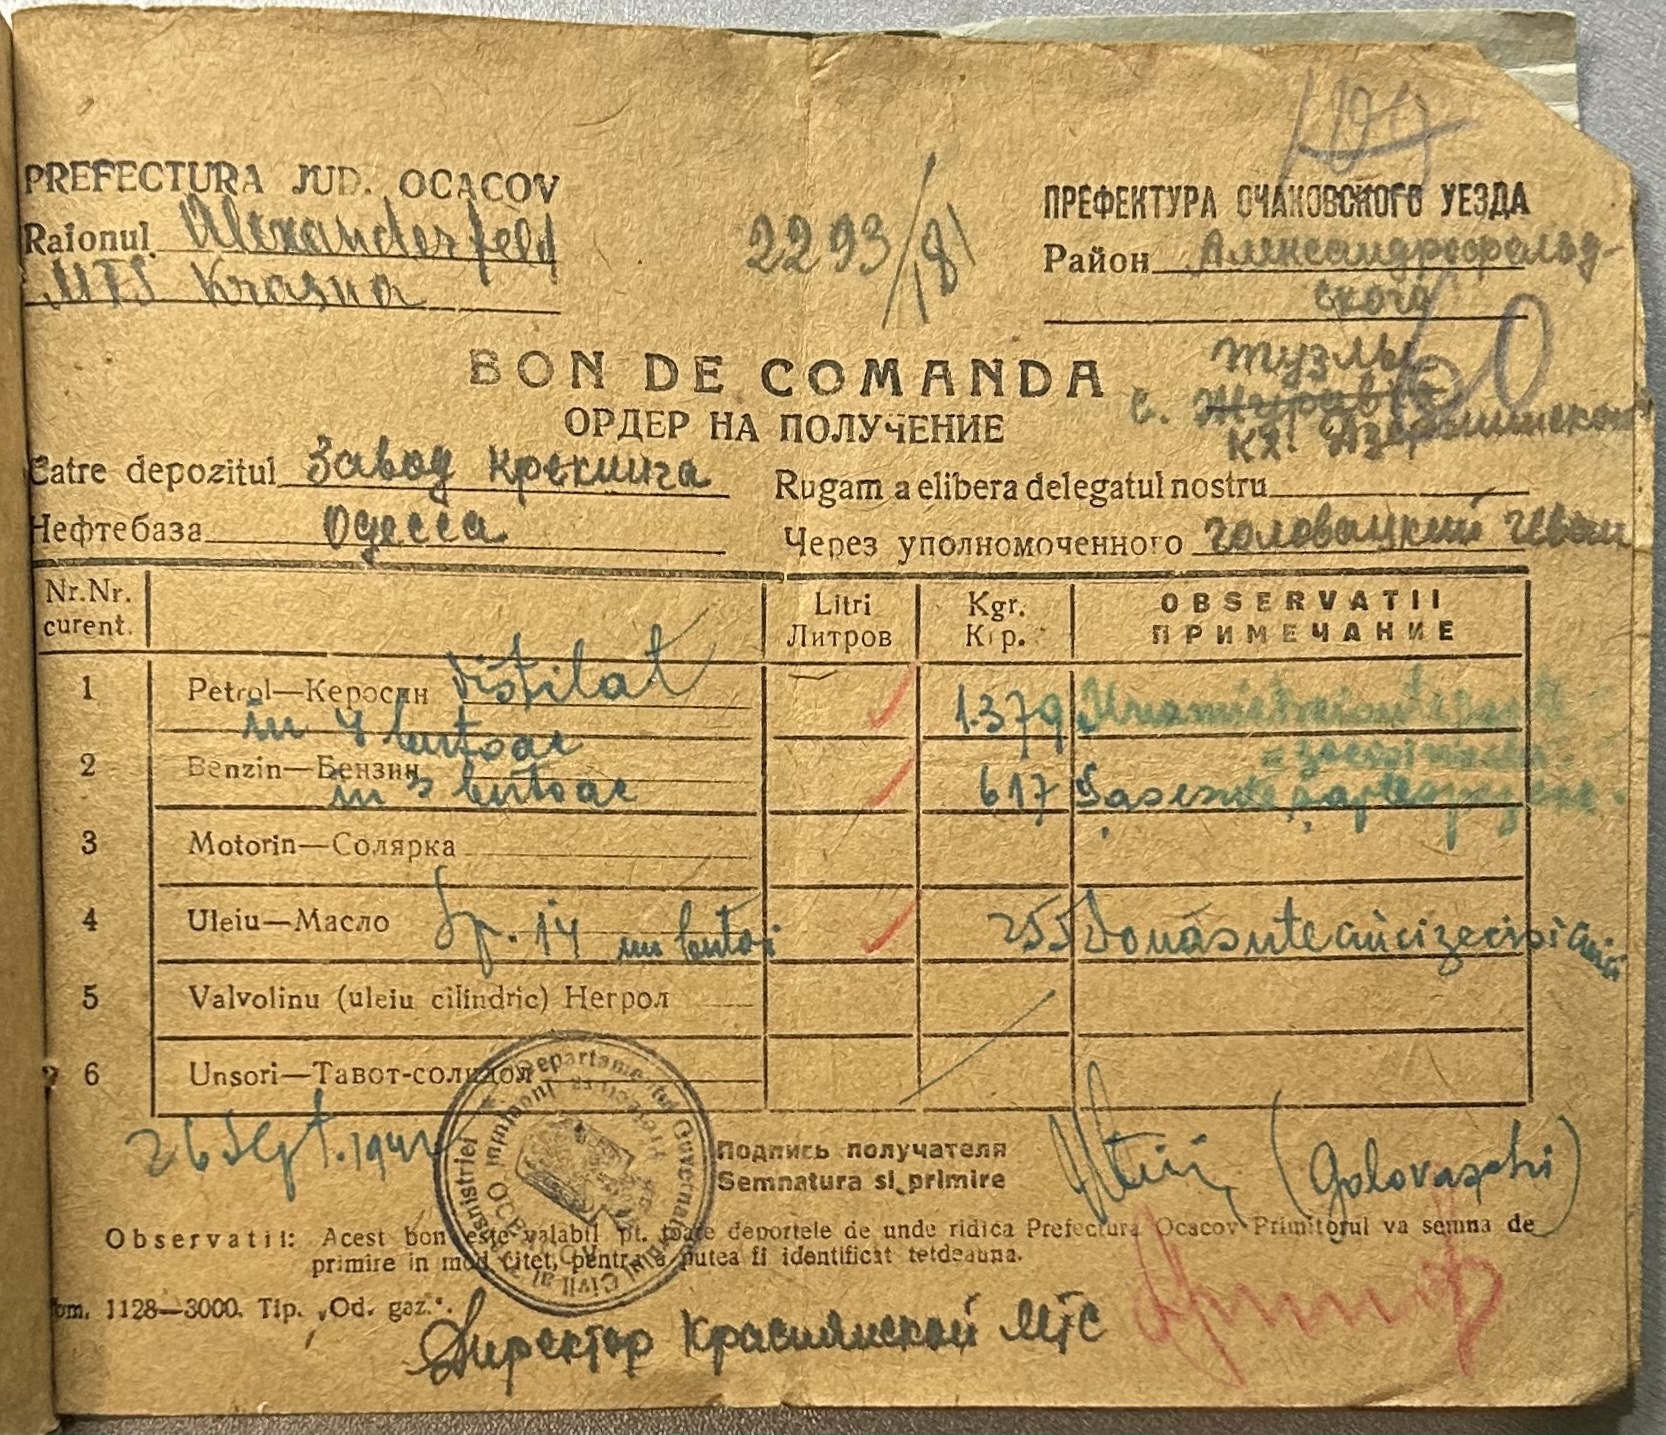 109
PREFECTURA JUD. OCACOV
ПРЕФЕКТУРА ОЧАКОВСКОГО УЕЗДА
Raionul Alexanderfeld
2293/181
Район Александрофельд-
MTS Krasna
ского
BON DE COMANDA
Тузлы
60
с.
ОРДЕР НА ПОЛУЧЕНИЕ
кх.
Catre depozitul Завод Крекинга
Rugam a elibera delegatul nostru
Нефтебаза Одесса
Через уполномоченного головацкий
Nr.Nr. curent.
Litri Литров
Kgr. Кгр.
OBSERVATII ПРИМЕЧАНИЕ
1 Petrol—Керосин distilat 1.379
in 4 butoae
2 Benzin—Бензин 617
in 3 butoae
3 Motorin—Солярка
4 Uleiu—Масло Sp. 14 un butoi 255 Douăsute cincizeci si cinci
5 Valvolinu (uleiu cilindric) Негрол
6 Unsori—Тавот-солидол
26 Sept. 1942
Подпись получателя
Semnatura si primire
(Golovaschi)
Observatii: Acest bon este valabil pt. toate deportele de unde ridica Prefectura Ocacov Primitorul va semna de
primire in mod citet, pentru a putea fi identificat tetdeauna.
om. 1128—3000. Tip. „Od. gaz.".
Директор Краснянской МТС